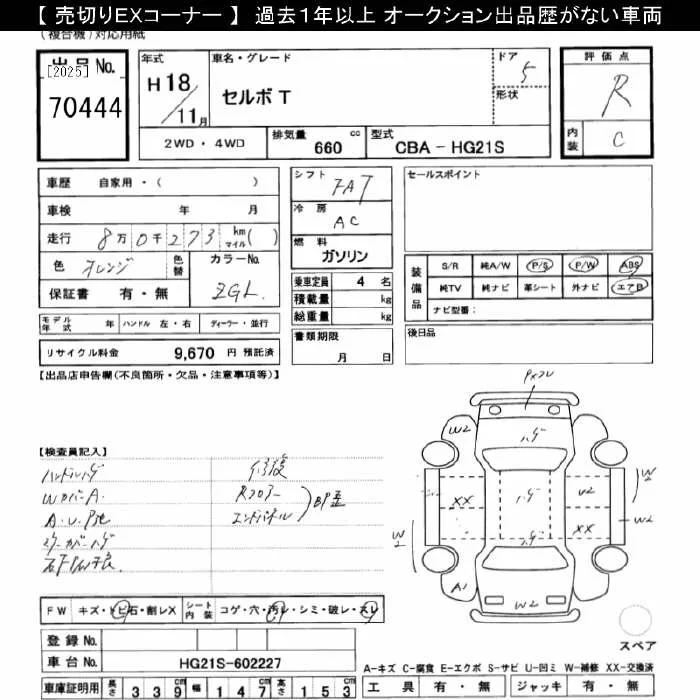 【 売切りEXコーナー 】 過去1年以上 オークション出品歴がない車両
(複合機)対応用紙
出品No.
[2025]
70444
年式
H18/11月
車名・グレード
セルボT
ドア
5
形状
評価点
R
内装
C
2WD・4WD
排気量 660 cc
型式 CBA - HG21S
車歴 自家用・( )
車検 年 月
走行 8万0千273 km マイル( )
色 オレンジ
色替
カラーNo. ZGL
保証書 有・無
シフト FAT
冷房 AC
燃料 ガソリン
乗車定員 4 名
積載量 kg
総重量 kg
セールスポイント
装備品
S/R 純A/W P/S P/W ABS
純TV 純ナビ 革シート 外ナビ エアB
ナビ型番:
モデル年式 年 ハンドル 左・右 ディーラー・並行
リサイクル料金 9,670 円 預託済
書類期限 月 日
後日品
【出品店申告欄(不良箇所・欠品・注意事項等)】
【検査員記入】
ハンドルハゲ
WカバーA.
A.U.P他
修復
Rフロアー
エンドパネル
BP歪
W2
ハゲ
XX
W2
ハゲ
U2
XX
W2
W2
W2
A1
W2
FW キズ・トビ石・削レX
シート内装 コゲ・穴・汚レ・シミ・破レ・スレ
登録No.
車台No. HG21S-602227
車庫証明用 長さ 339 幅 147 高さ 153
スペア
A-キズ C-腐食 E-エクボ S-サビ U-凹ミ W-補修 XX-交換済
工具 有・無 ジャッキ 有・無